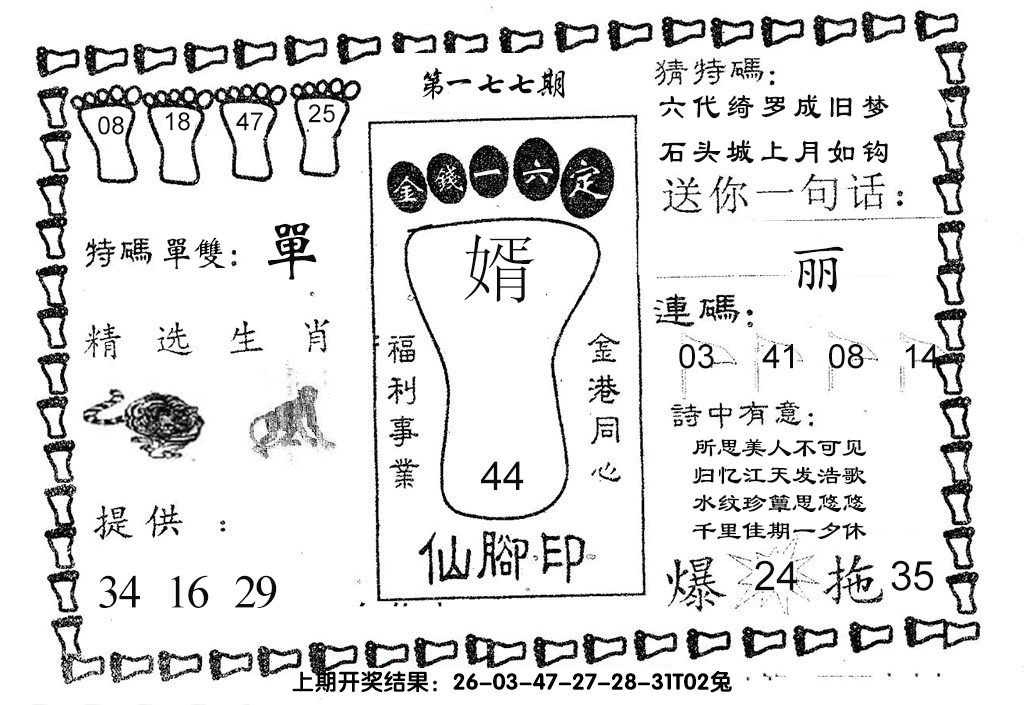 第一七七期
08 18 47 25
特碼單雙: 單
精选生肖
提供:
34 16 29
金錢一六定
婿
福利事業
金港同心
44
仙腳印
猜特碼:
六代绮罗成旧梦
石头城上月如钩
送你一句话:
丽
連碼:
03 41 08 14
詩中有意:
所思美人不可见
归忆江天发浩歌
水纹珍簟思悠悠
千里佳期一夕休
爆 24 拖 35
上期开奖结果: 26-03-47-27-28-31T02兔